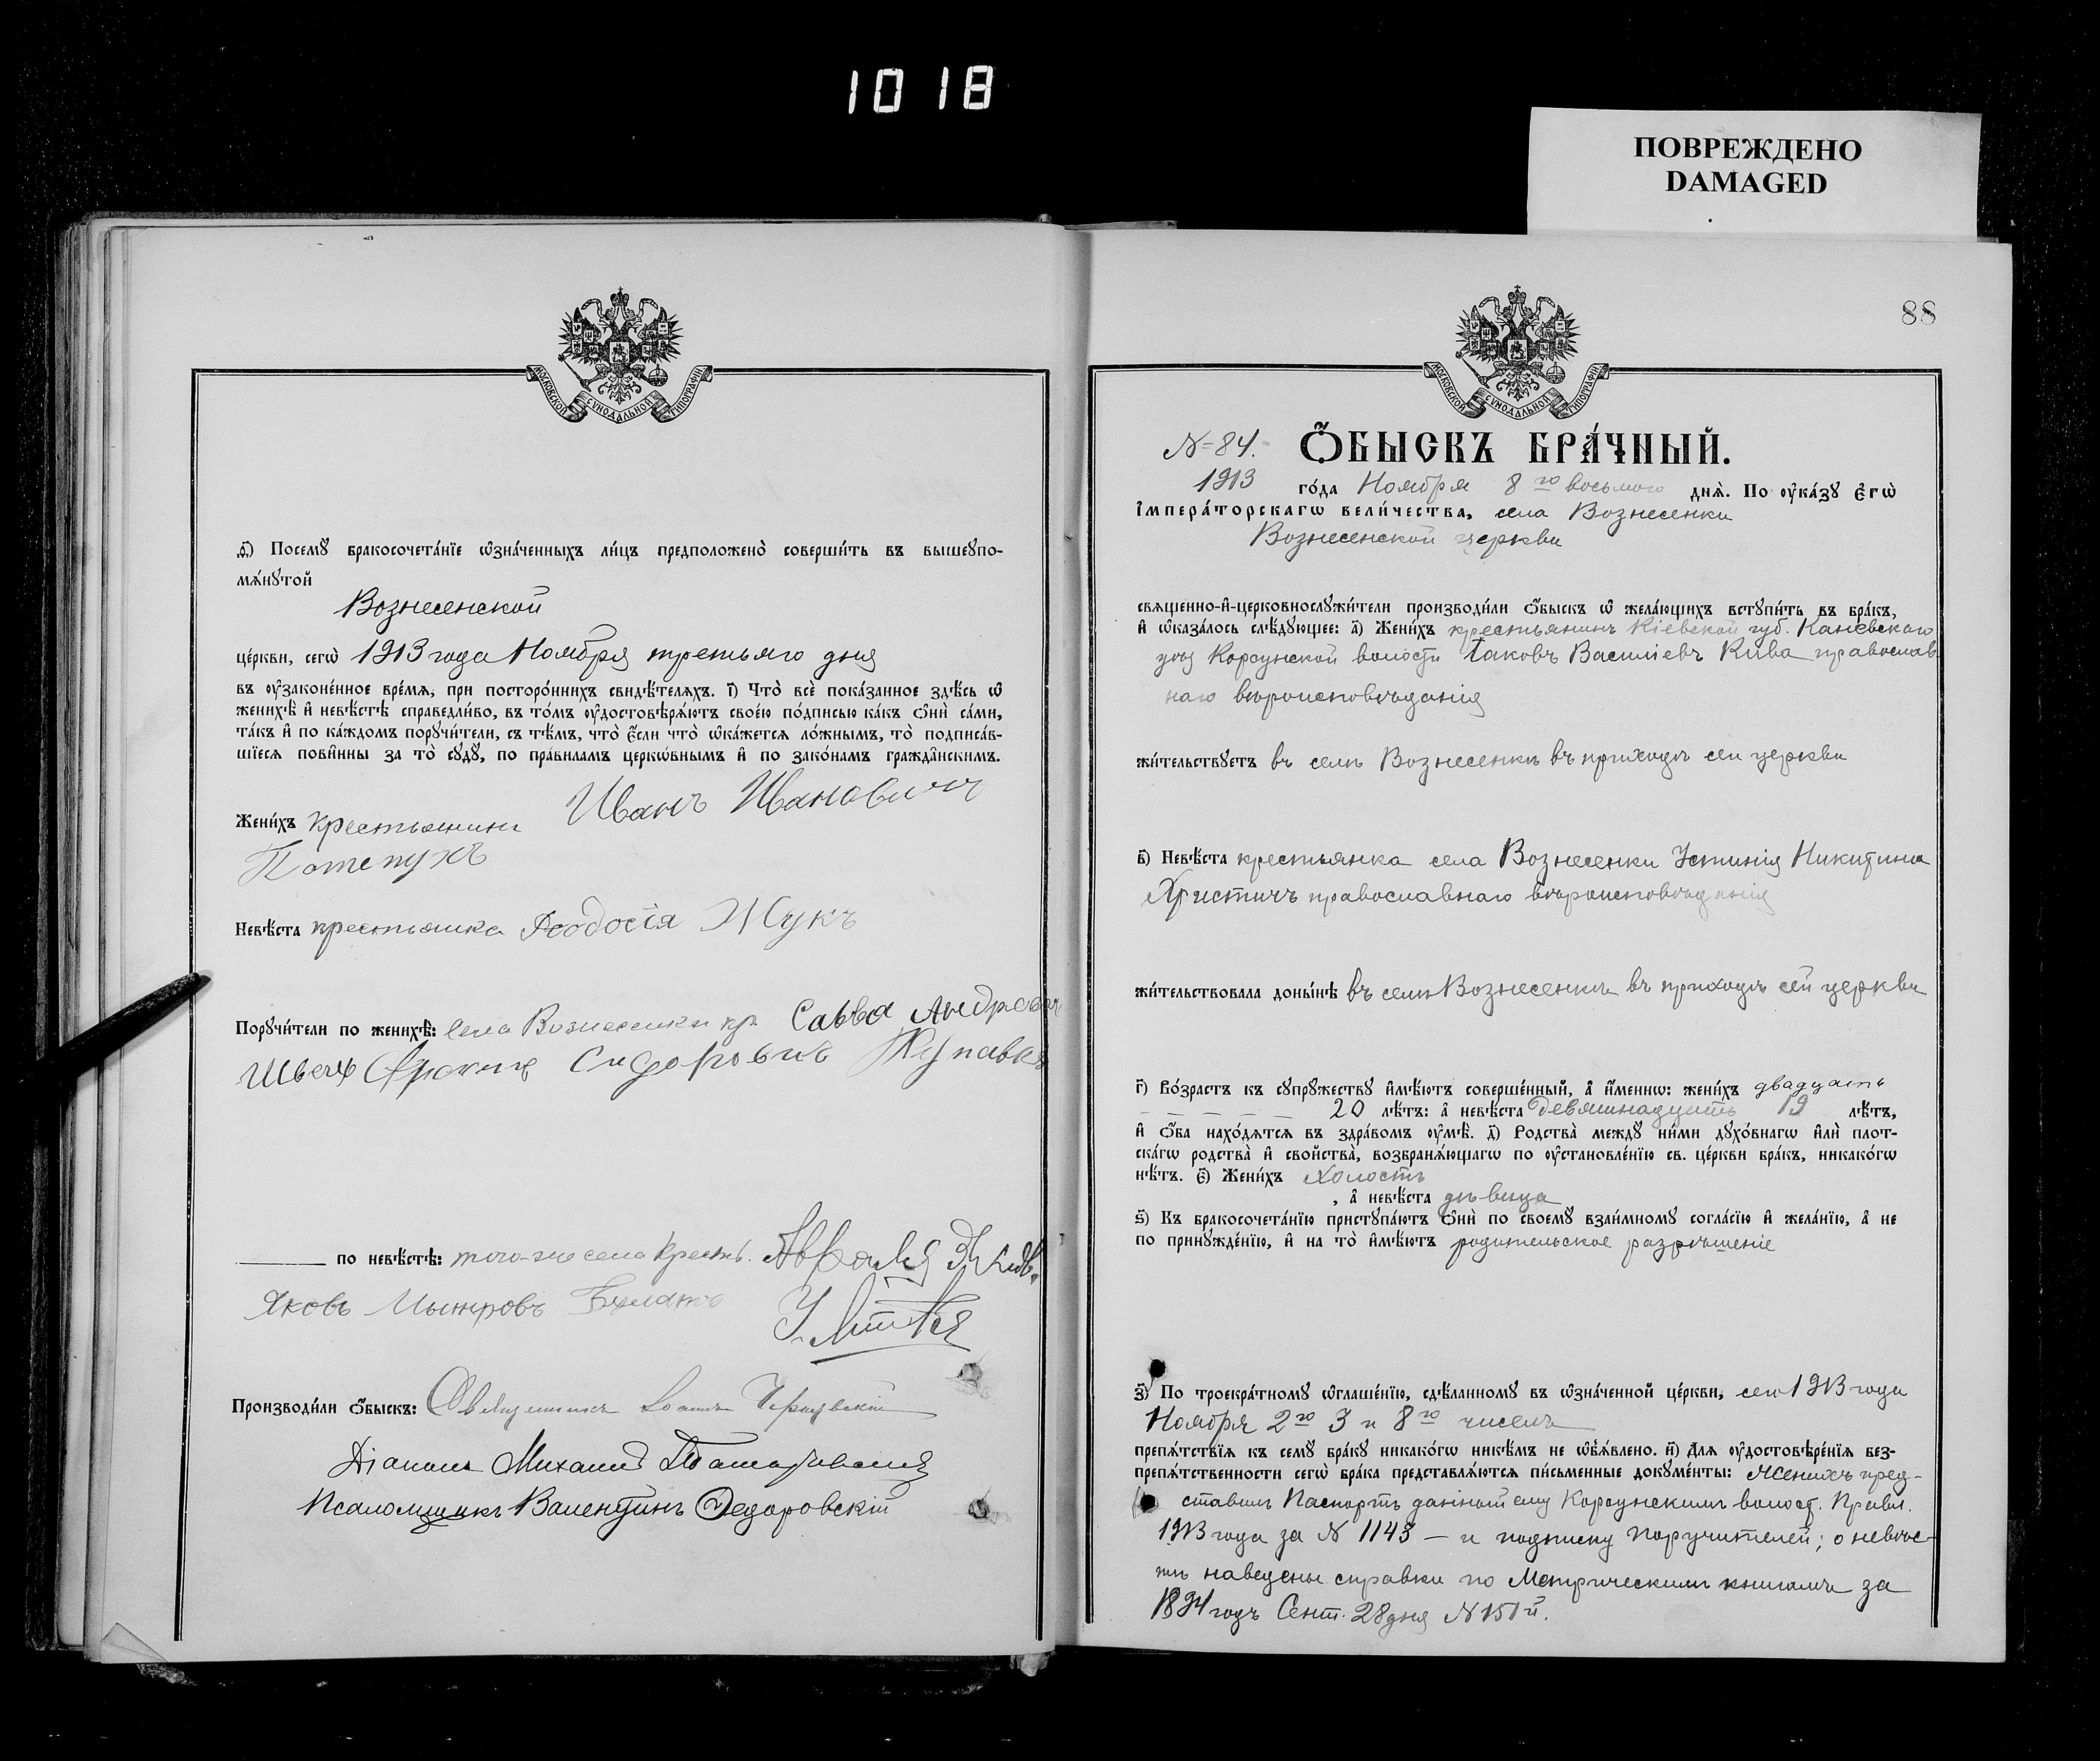 1018
ПОВРЕЖДЕНО
DAMAGED
МОСКОВСКОЙ СѴНОДАЛЬНОЙ ТИПОГРАФІИ
ѳ҃) Посемꙋ бракосочета́нїе ѡзна́ченныхъ ли́цъ предположено̀ соверши́ть въ вышеупо-
мѧ́нꙋтой
Вознесенской
це́ркви, сегѡ̀ 1913 года Ноября третьяго дня
въ ᲂу҆зако́ненное вре́мѧ, при посторо́ннихъ свидѣ́телѧхъ. і҃) Что̀ всѐ пока́занное здѣ́сь ѡ҆
женихѣ̀ и҆ невѣ́стѣ справедли́во, въ то́мъ ᲂу҆достовѣрѧ́ютъ свое́ю по́дписью ка́къ ѻ҆нѝ са́ми,
та́къ и҆ по ка́ждомъ порꙋчи́тели, съ тѣ́мъ, что̀ є҆́сли что̀ ѡ҆ка́жетсѧ ло́жнымъ, то̀ подписа́в-
шїесѧ пови́нны за то̀ сꙋдꙋ̀, по пра́виламъ церкѡ́внымъ и҆ по зако́намъ гражда́нскимъ.
Жени́хъ крестьянинъ Иванъ Ивановичъ
Потепухъ
Невѣ́ста крестьянка Ѳеодосія Жукъ
Порꙋчи́тели по женихѣ̀: села Вознесенки кр. Савва Андреевич
Швець Сидоровичъ
по невѣ́стѣ: того-же села крест.
Яковъ
Производи́ли ѻ҆́быскъ: Священникъ Іоаннъ
Діаконъ Михаилъ
Псаломщикъ Валентинъ Федоровскій
88
МОСКОВСКОЙ СѴНОДАЛЬНОЙ ТИПОГРАФІИ
N=84. Ѻ҆́БЫСКЪ БРА́ЧНЫЙ.
1913 го́да Ноября 8го восьмого днѧ̀. По ᲂу҆ка́зꙋ є҆гѡ̀
і҆мпера́торскагѡ вели́чества, села Вознесенки
Вознесенской церкви
свѧще́нно-и҆-церковнослꙋжи́тели производи́ли ѻ҆́быскъ ѡ҆ жела́ющихъ встꙋпи́ть въ бра́къ,
и҆ ѡ҆каза́лось слѣ́дꙋющее: а҃) Жени́хъ крестьянинъ Кіевской губ. Каневскаго
уѣз. Корсунской волости Іаковъ Василіевъ Кива православ-
наго вѣроисповѣданія
жи́тельствꙋетъ въ селѣ Вознесенкѣ въ приходѣ сей церкви
в҃) Невѣ́ста крестьянка села Вознесенки Устинія Никитина
Христичъ православнаго вѣроисповѣданія
жи́тельствовала доны́нѣ въ селѣ Вознесенкѣ въ приходѣ сей церкви
г҃) Во́зрастъ къ сꙋпрꙋ́жествꙋ и҆мѣ́ютъ соверше́нный, а҆ и҆́меннѡ: жени́хъ двадцать
— — — — — 20 лѣ́тъ: а҆ невѣ́ста девятнадцать 19 лѣ́тъ,
и҆ ѻ҆́ба нахо́дѧтсѧ въ здра́вомъ ᲂу҆мѣ̀. д҃) Родства̀ междꙋ̀ ни́ми дꙋхо́внагѡ и҆лѝ плот-
ска́гѡ родства̀ и҆ сво́йства̀, возбранѧ́ющагѡ по ᲂу҆становле́нїю св. це́ркви бра́къ, никако́гѡ
нѣ́тъ. є҃) Жени́хъ холостъ
, а҆ невѣ́ста дѣвица
ѕ҃) Къ бракосочета́нїю пристꙋпа́ютъ ѻ҆нѝ по своемꙋ̀ взаи́мномꙋ согла́сїю и҆ жела́нїю, а҆ не
по принꙋжде́нїю, и҆ на то̀ и҆мѣ́ютъ родительское разрѣшеніе
з҃) По троекра́тномꙋ ѡ҆глаше́нїю, сдѣ́ланномꙋ въ ѡ҆зна́ченной це́ркви, сего 1913 года
Ноября 2го 3 и 8го чиселъ
препѧ́тствїѧ къ семꙋ̀ бра́кꙋ никако́гѡ никѣ́мъ не ѡ҆б̾ѧ́влено. и҃) Длѧ ᲂу҆достовѣре́нїѧ без-
препѧ́тственности сегѡ̀ бра́ка представлѧ́ютсѧ пи́сьменные докꙋме́нты: Женихъ пред-
ставилъ Паспортъ данный ему Корсунскимъ волост. Правл.
1913 года за N 1143 — и подписку поручителей; о невѣс-
тѣ наведены справки по Метрическимъ книгамъ за
1894 годъ Сент. 28 дня N 151й.